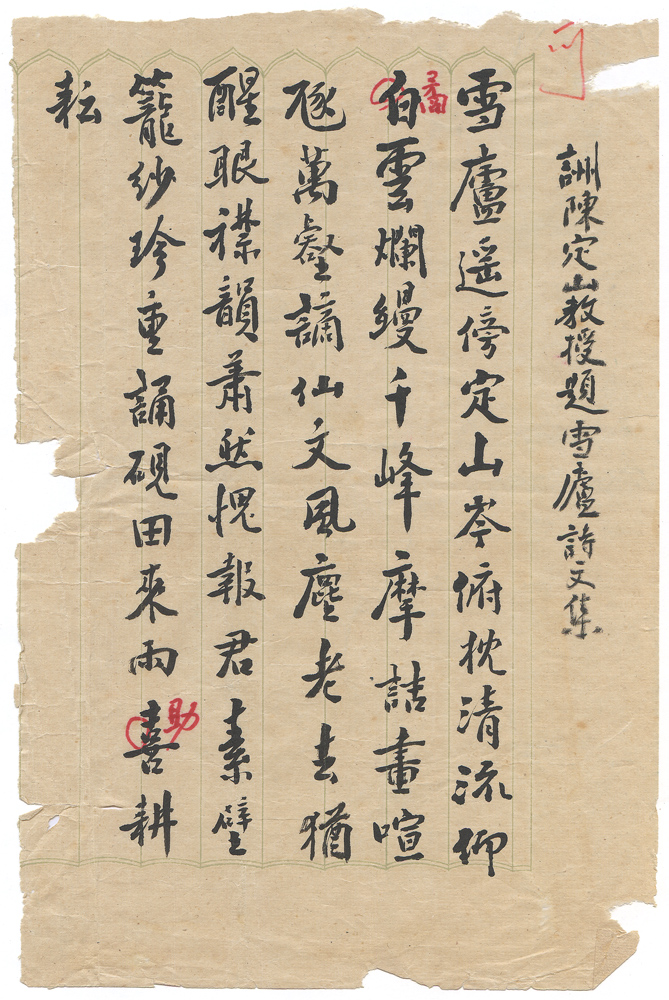 詶陳定山教授題雪廬詩文集
雪廬遥傍定山岑俯枕清流仰
矞
白雲爛縵千峰摩詰畫喧
豗萬壑謫仙文風塵老去猶
醒眼襟韻蕭然愧報君素壁
籠紗珍重誦硯田來雨喜耕
助
耘